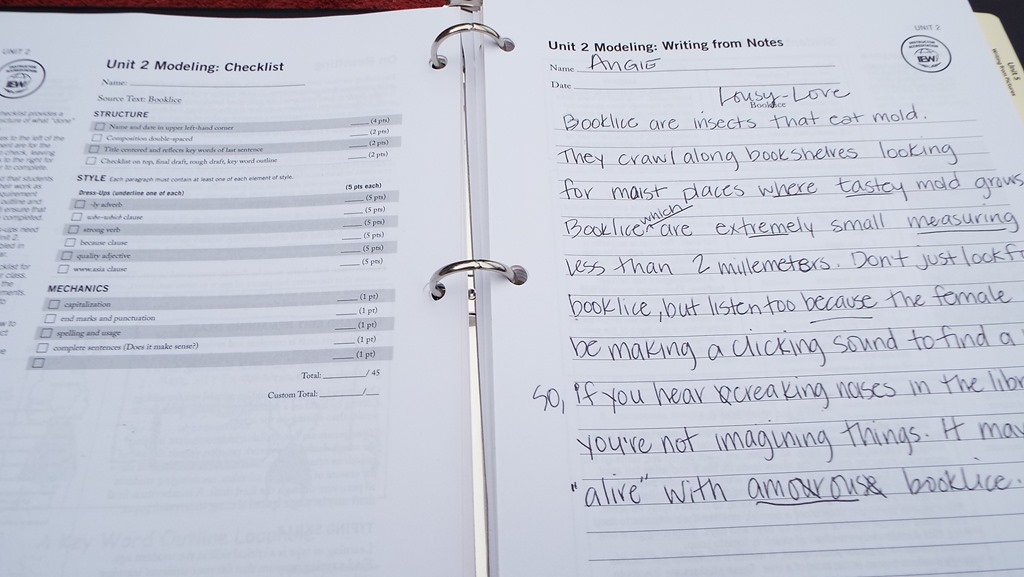 UNIT 2
IEW
Unit 2 Modeling: Checklist
Name:
Source Text: Booklice
STRUCTURE
Name and date in upper left-hand corner (4 pts)
Composition double-spaced (2 pts)
Title centered and reflects key words of last sentence (2 pts)
Checklist on top, final draft, rough draft, key word outline (2 pts)
STYLE Each paragraph must contain at least one of each element of style.
Dress-Ups (underline one of each) (5 pts each)
-ly adverb (5 pts)
who-which clause (5 pts)
strong verb (5 pts)
because clause (5 pts)
quality adjective (5 pts)
www.asia clause (5 pts)
MECHANICS
capitalization (1 pt)
end marks and punctuation (1 pt)
spelling and usage (1 pt)
complete sentences (Does it make sense?) (1 pt)
(1 pt)
Total: / 45
Custom Total: /
UNIT 2
IEW
Unit 2 Modeling: Writing from Notes
Name ANGIE
Date
Lousy-Love
Booklice
Booklice are insects that eat mold.
They crawl along bookshelves looking
for moist places where tastey mold grows
Booklice which are extremely small measuring
less than 2 millemeters. Don't just look f
booklice, but listen too because the female
be making a clicking sound to find a
So, If you hear creaking noises in the libr
you're not imagining things. It may
"alive" with amourous booklice.
Unit 5
Writing from Pictures